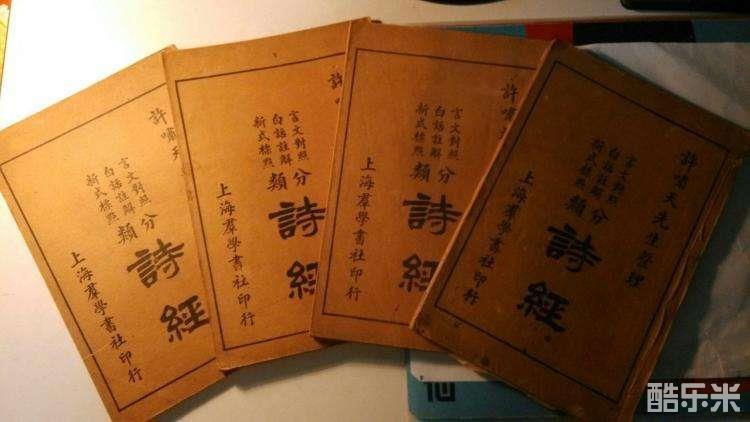 許嘯天
言文對照
白話註解
新式標點
分類
詩經
上海羣學書社印行
許嘯
言文對照
白話註解
新式標點
分類
詩經
上海羣學書社印行
許嘯
言文對照
白話註解
新式標點
分類
詩經
上海羣學書社印行
許嘯天先生整理
言文對照
白話註解
新式標點
分類
詩經
上海羣學書社印行
酷乐米